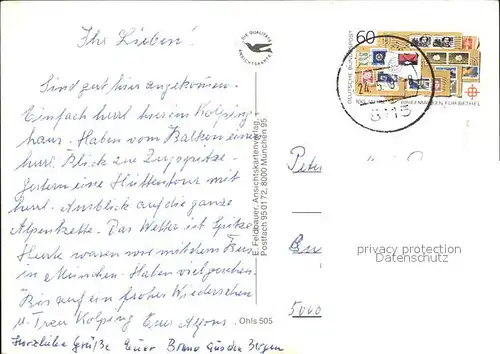 Ihr Lieben!
Sind gut hier angekommen.
Einfach herrl. hier im Kolping-
haus. Haben vom Balkon einen
herrl. Blick zur Zugspitze.
Gestern eine Hüttentour mit
herrl. Ausblick auf die ganze
Alpenkette. Das Wetter ist Spitze
Heute waren wir mit dem Bus
in München. Haben viel gesehen.
Bis auf ein frohes Wiedersehen
u. Treu Kolping Eure
Herzliche Grüße Euer Bruno aus den Bergen
DIE QUALITÄTS
ANSICHTSKARTE
E. Feldbauer, Ansichtskartenverlag,
Postfach 95 01 72, 8000 München 95
Ohls 505
60
DEUTSCHE BUNDESPOST
BRIEFMARKEN FÜR BETHEL
8113
Peter
privacy protection
Datenschutz
5000